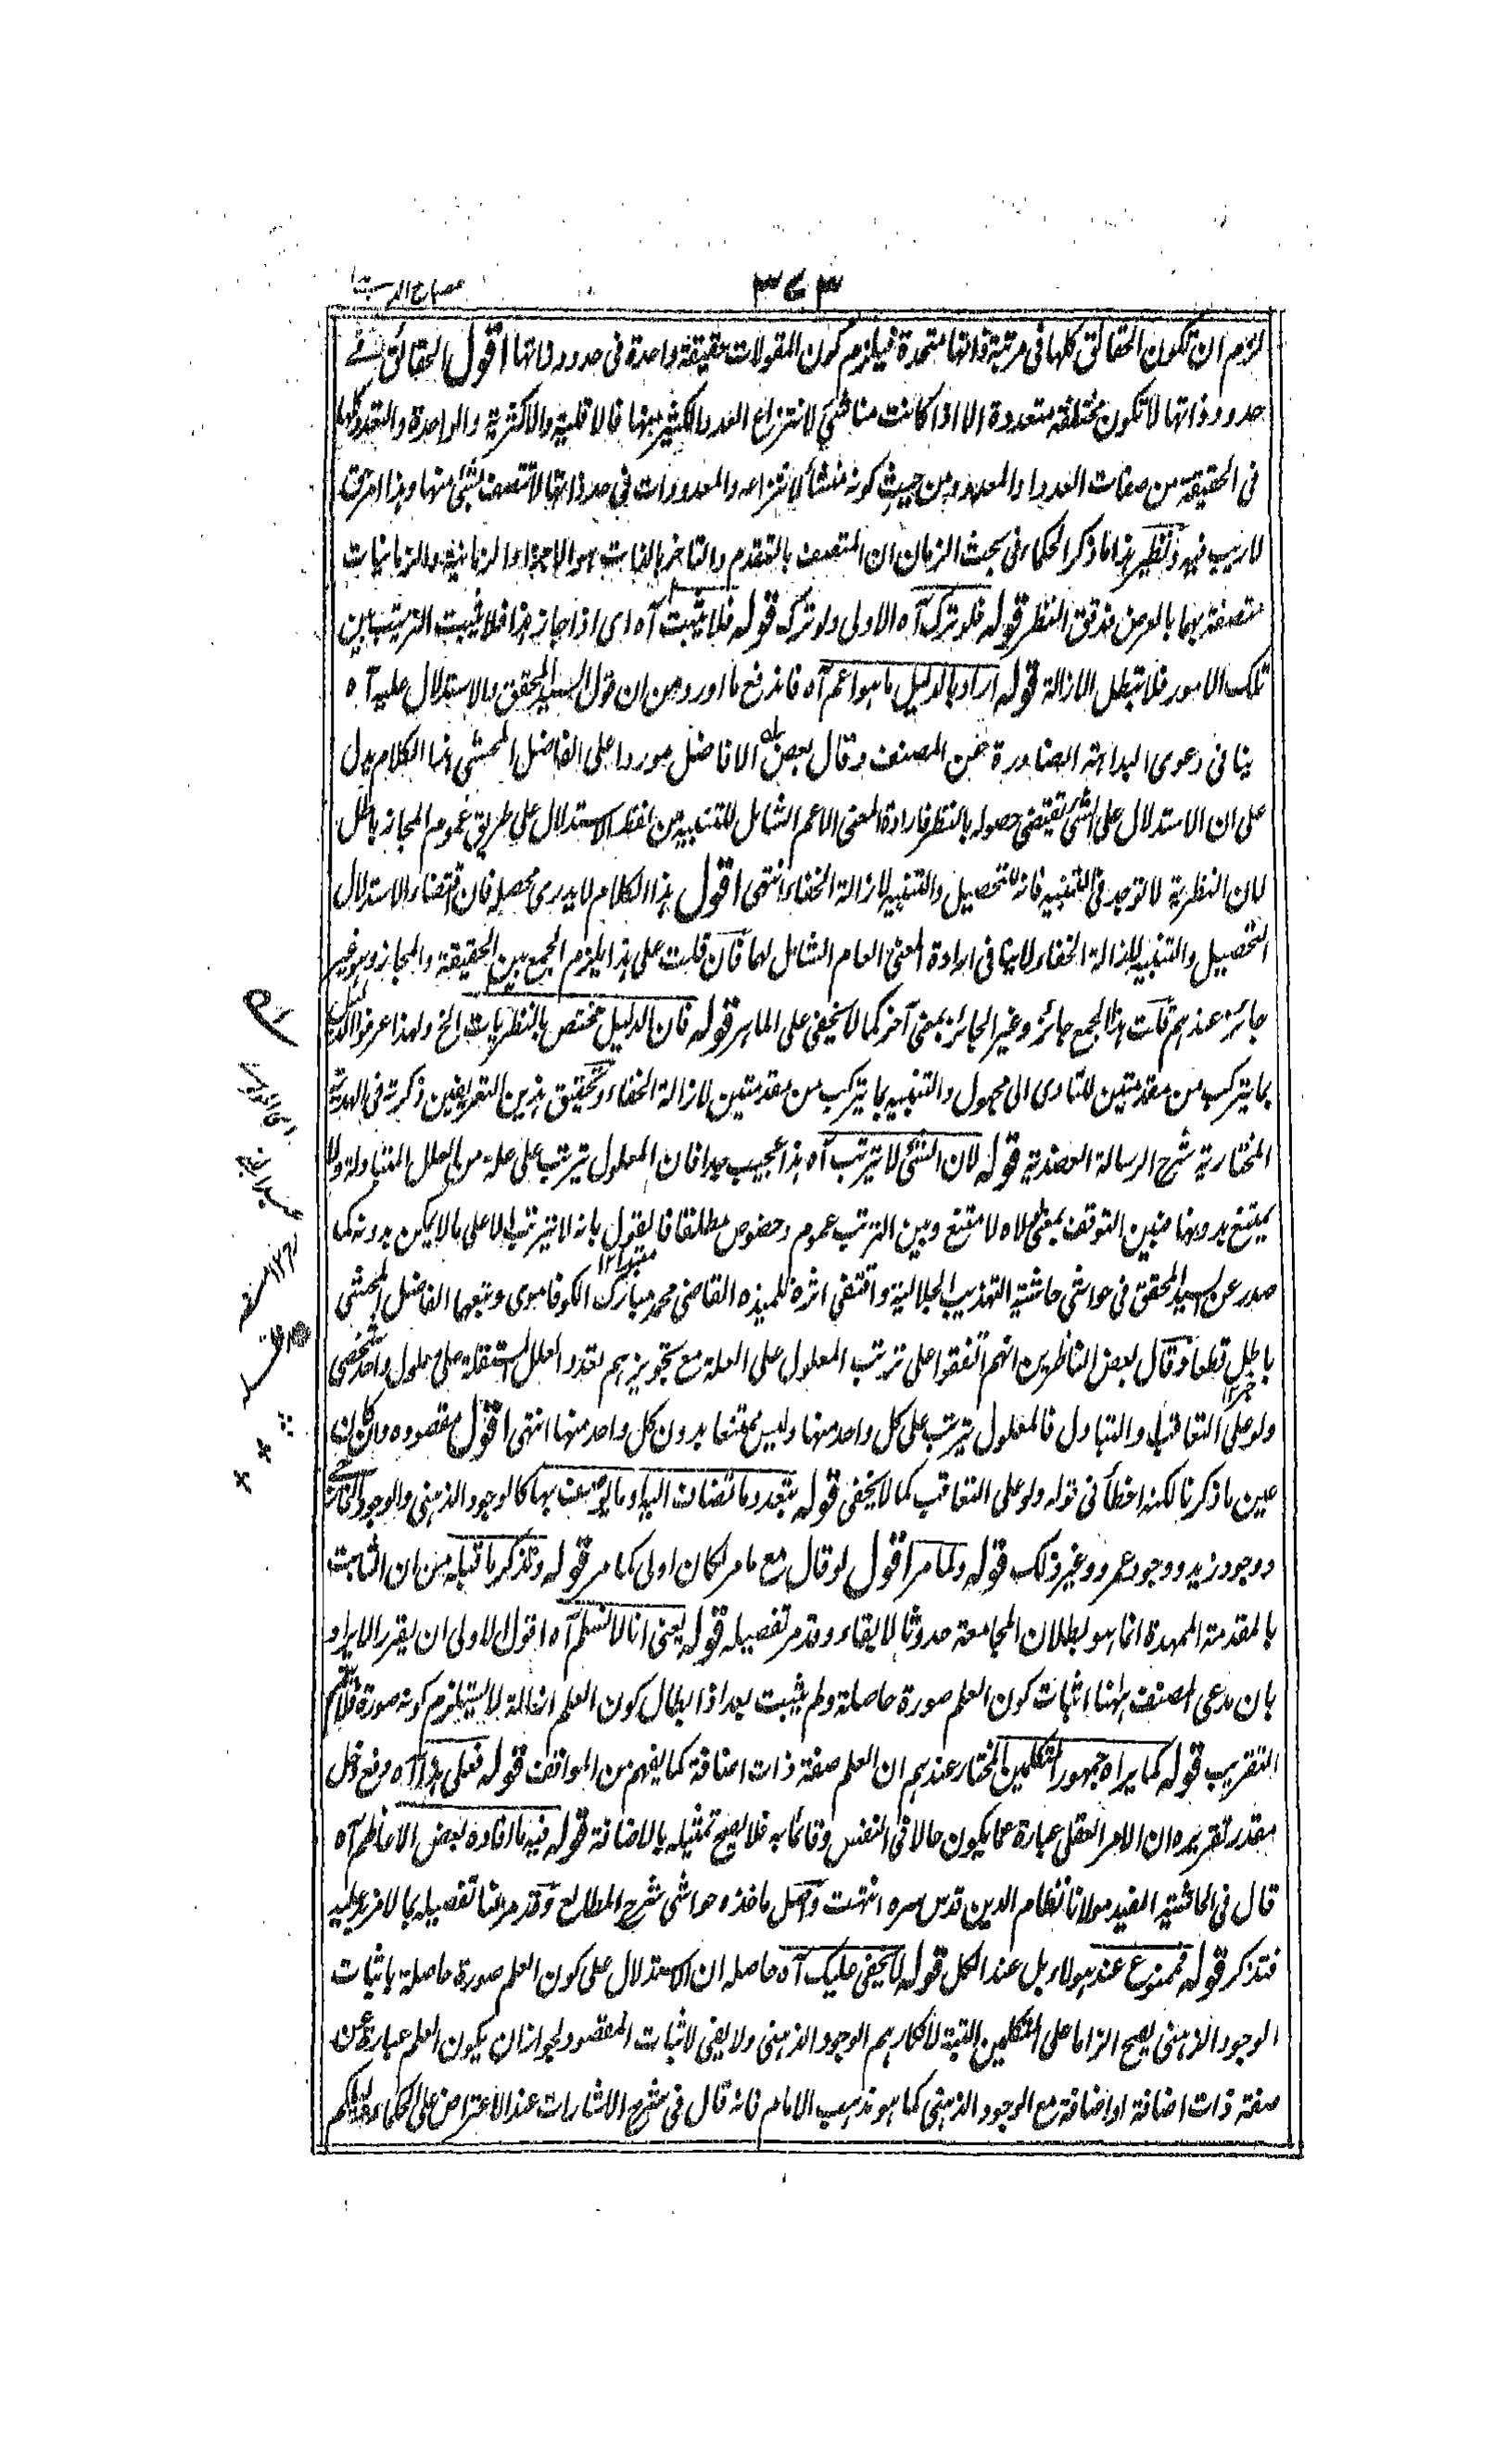 ٣٧٣
مصباح الدجى
لزم ان تكون الحقائق كلها فى مرتبة ذاتها متحدة فيلزم كون المقولات حقيقة واحدة فى حدود ذاتها اقول الحقائق فى
حدود ذاتها لا تكون مختلفة متعددة الا اذا كانت مناشى لانتزاع العدد الكثير منها فالاقلية والاكثرية والواحدة والتعدد كلها
فى الحقيقة من صفات العدد او المعدود من حيث كونه منشأ لانتزاعه والمعدودات فى حد ذاتها لا تتصف بشئ منها وهذا امر حق
لا ريب فيه ونظير هذا ما ذكر الحكماء فى بحث الزمان ان المتصف بالتقدم والتاخر بالذات هو الاجزاء الزمانية والزمانيات
متصفة بهما بالعرض فدقق النظر قوله فلو ترك آه الاولى ولو ترك قوله فلا يثبت آه اى اذا جاز هذا فلا يثبت الترتيب بين
تلك الامور فلا تبطل الازالة قوله اراد بالدليل ما هو اعم آه فاندفع ما اورد من ان قول السيد المحقق والاستدلال عليه آه
ينافى دعوى البداهة الصادرة عن المصنف وقال بعض الافاضل موردا على الفاضل المحشى هذا الكلام يدل
على ان الاستدلال على الشئ يقتضى حصوله بالنظر فارادة المعنى الاعم الشامل للتنبيه من لفظ الاستدلال على طريق عموم المجاز باطل
لان النظرية لا توجد فى التنبيه فانه للتحصيل والتنبيه لازالة الخفاء انتهى اقول هذا الكلام لا يدرى محصله فان اقتضاء الاستدلال
التحصيل والتنبيه لازالة الخفاء لا ينافى ارادة المعنى العام الشامل لهما فان قلت على هذا يلزم الجمع بين الحقيقة والمجاز وهو غير
جائز عندهم قلت هذا الجمع جائز وغير الجائز بمعنى آخر كما لا يخفى على الماهر قوله فان الدليل مختص بالنظريات الخ ولهذا عرفوا الدليل
بما يتركب من مقدمتين للتادى الى مجهول والتنبيه بما يتركب من مقدمتين لازالة الخفاء وتحقيق هذين التعريفين ذكرته فى الهدية
المختارية شرح الرسالة العضدية قوله لان الشئ لا يترتب آه هذا عجيب جدا فان المعلول يترتب على علة من العلل المتبادلة ولا
يمتنع بدونها فبين التوقف بمعنى لولاه لامتنع وبين الترتب عموم وخصوص مطلقا فالقول بانه لا يترتب الا على ما لا يمكن بدونه كما
صدر عن السيد المحقق فى حواشى حاشية التهذيب الجلالية واقتفى اثره تلميذه القاضى محمد مبارك الكوفاموى وتبعهما الفاضل المحشى
باطل قطعا وقال بعض الناظرين انهم اتفقوا على ترتب المعلول على العلة مع تجويزهم تعدد العلل المستقلة على معلول واحد شخصى
ولو على التعاقب والتبادل فالمعلول يترتب على كل واحد منها وليس ممتنعا بدون كل واحد منها انتهى اقول مقصوده وان كان
عين ما ذكرنا لكنه اخطأ فى قوله ولو على التعاقب كما لا يخفى قوله بتعدد ما تضاف اليه او ما يوصف بها كالوجود الذهنى والوجود الخارجى
ووجود زيد ووجود عمرو وغير ذلك قوله ولما مر اقول لو قال مع ما مر لكان اولى كما مر قوله وتذكر ما قبله من ان الثابت
بالمقدمة الممهدة انما هو بطلان المجامعة حدوثا لا بقاء وقد مر تفصيله قوله يعنى انا لا نسلم آه اقول الاولى ان يقرر الايراد
بان مدعى المصنف ههنا اثبات كون العلم صورة حاصلة ولم يثبت بعد اذ ابطال كون العلم ازالة لا يستلزم كونه صورة فلا يتم
التقريب قوله كما يراه جمهور المتكلمين المختار عندهم ان العلم صفة ذات اضافة كما يفهم من المواقف قوله فعلى هذا آه دفع دخل
مقدر تقريره ان الامر العقلى عبارة عما يكون حالا فى النفس وقائما به فلا يصح تمثيله بالاضافة قوله فيه ما افاده بعض الاعاظم آه
قال فى الحاشية المفيد مولانا نظام الدين قدس سره انتهت واصل ماخذه حواشى شرح المطالع وقد مر منا تفصيله بما لا مزيد عليه
فتذكر قوله فممنوع عند هؤلاء بل عند الكل قوله لا يخفى عليك آه حاصله ان الاستدلال على كون العلم صورة حاصلة باثبات
الوجود الذهنى يصح الزاما على المتكلمين البتة لانكارهم الوجود الذهنى ولا يفى لاثبات المقصود لجواز ان يكون العلم عبارة عن
صفة ذات اضافة او اضافة مع الوجود الذهنى كما هو مذهب الامام فانه قال فى شرح الاشارات عند الاعتراض على الحكماء